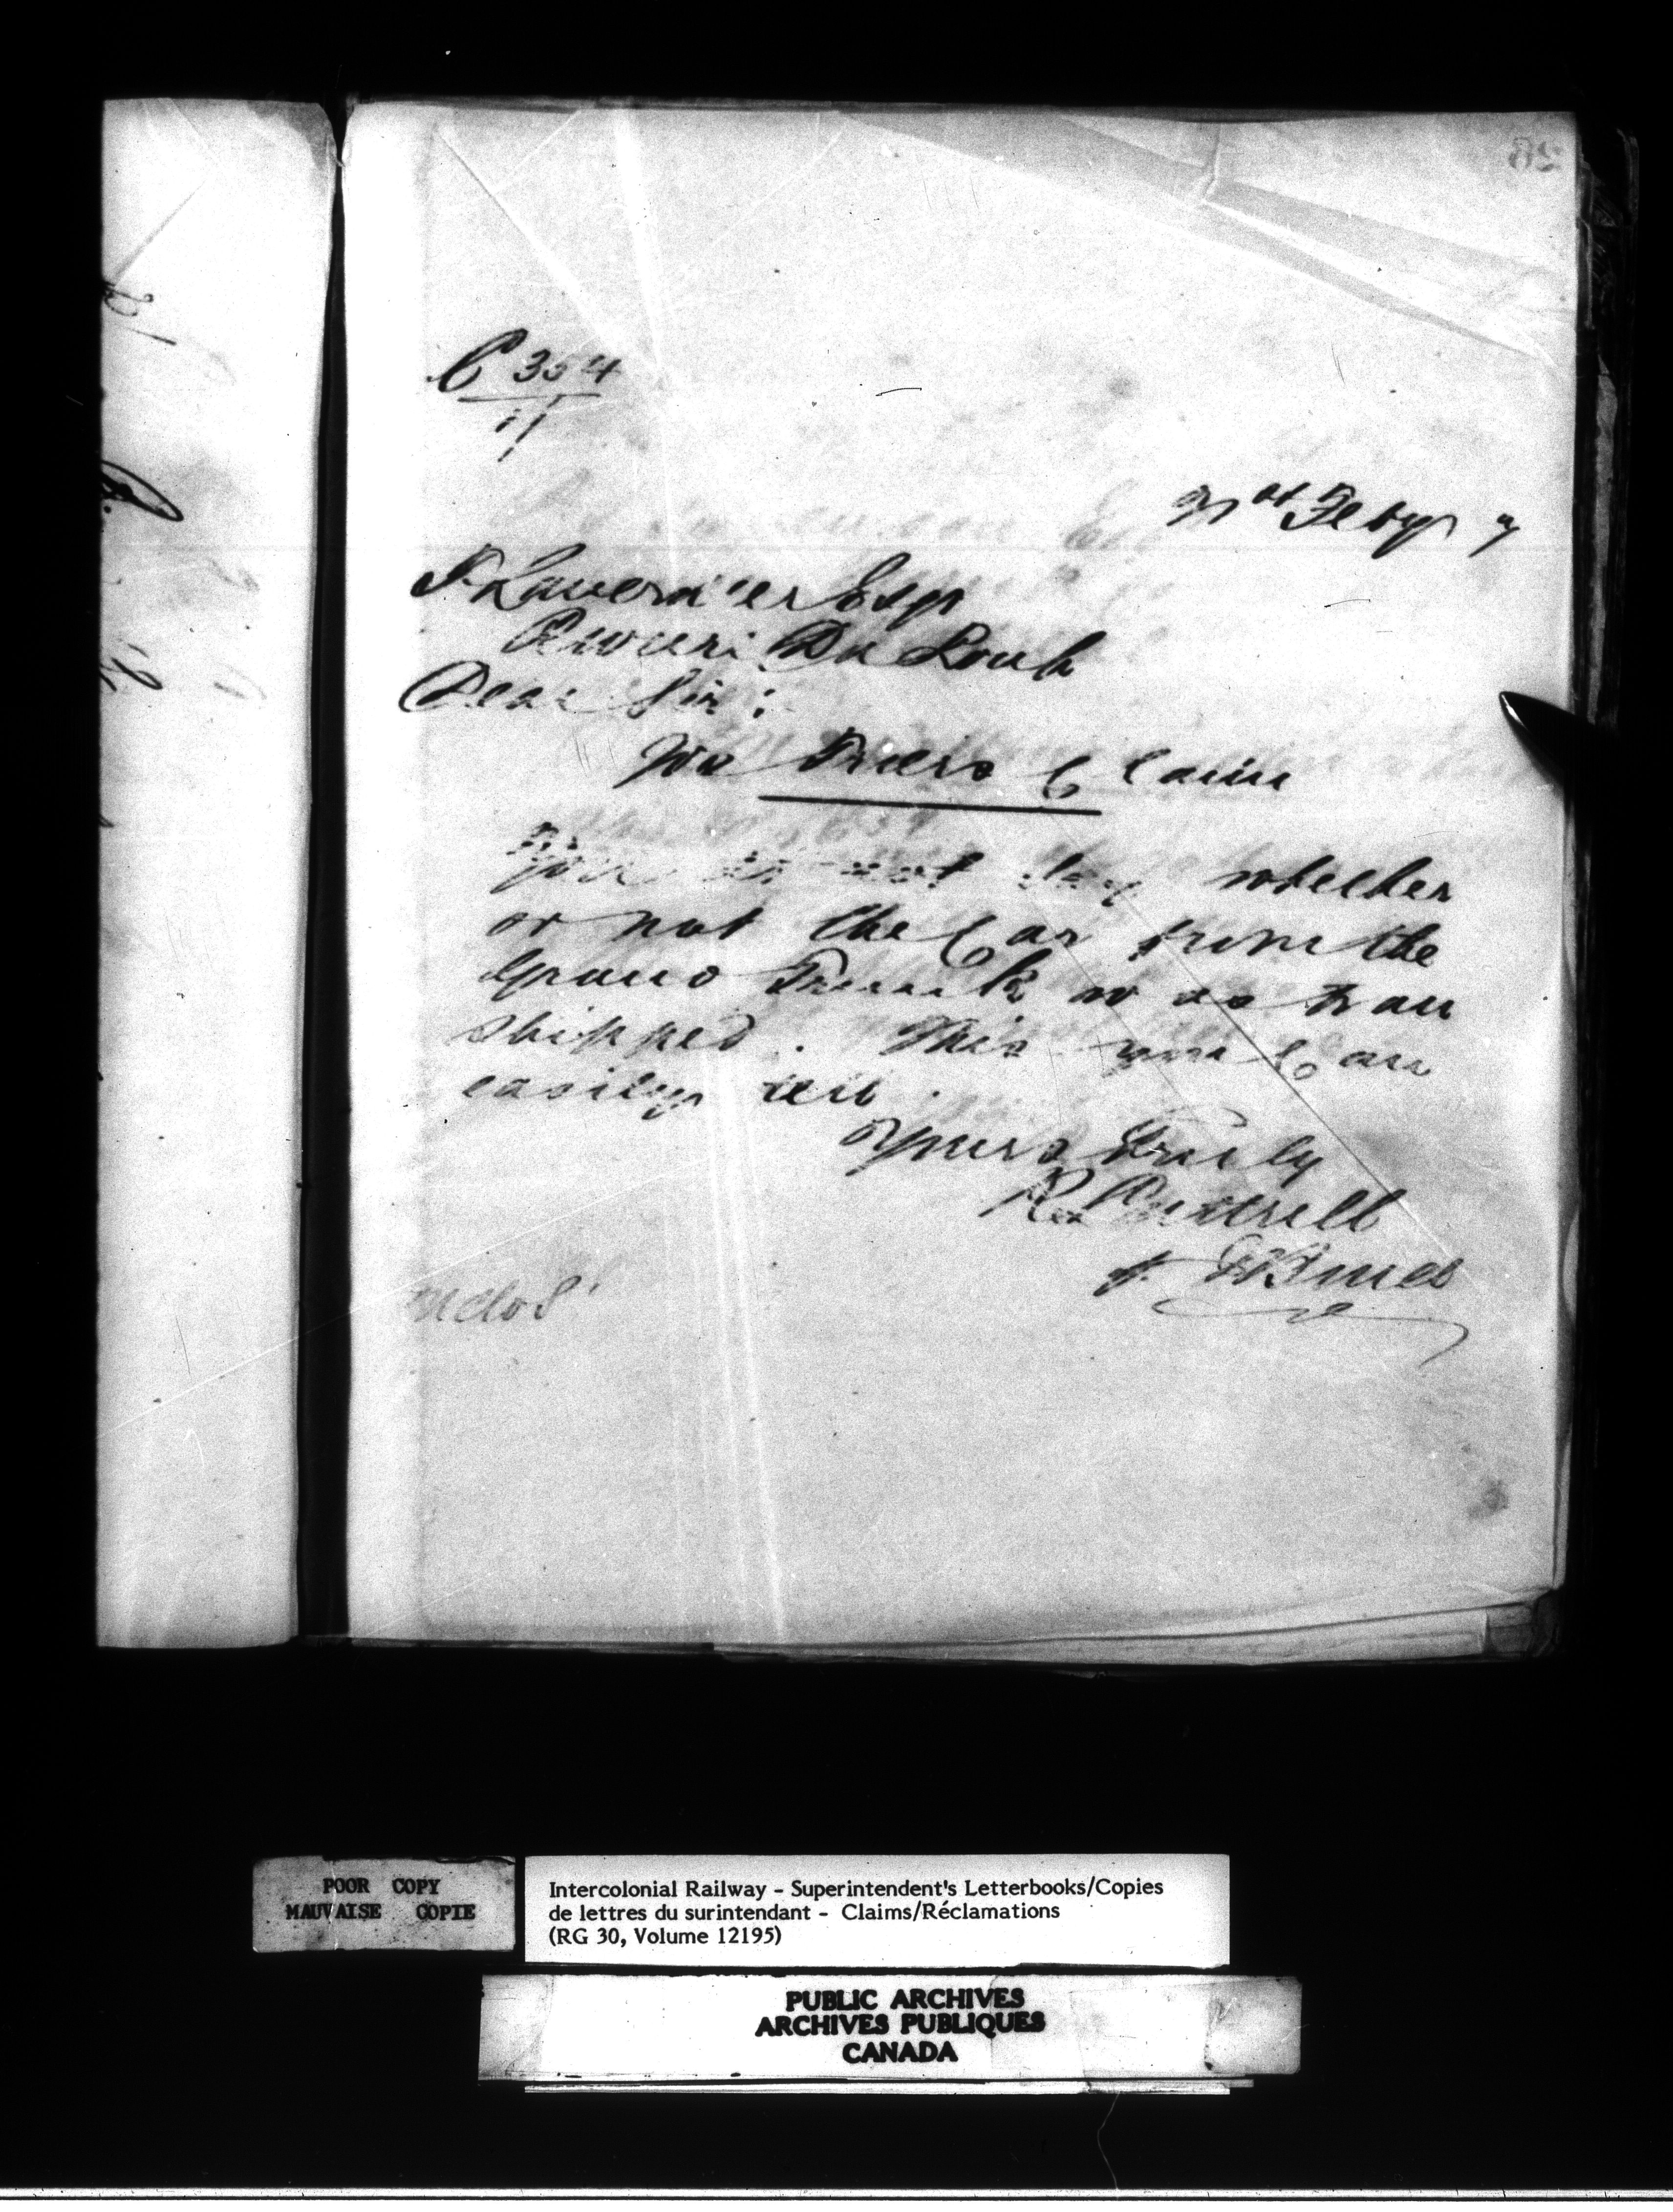 C 354
11
Feby 7
Laverdier Esqr
Riviere Du Loup
Dear Sir:
Claim
You do not say whether
or not the Car from the
Grand Trunk was tran
shipped. This you can
easily tell.
Yours truly
R
Inclos'
POOR COPY
MAUVAISE COPIE
Intercolonial Railway - Superintendent's Letterbooks/Copies
de lettres du surintendant - Claims/Réclamations
(RG 30, Volume 12195)
PUBLIC ARCHIVES
ARCHIVES PUBLIQUES
CANADA